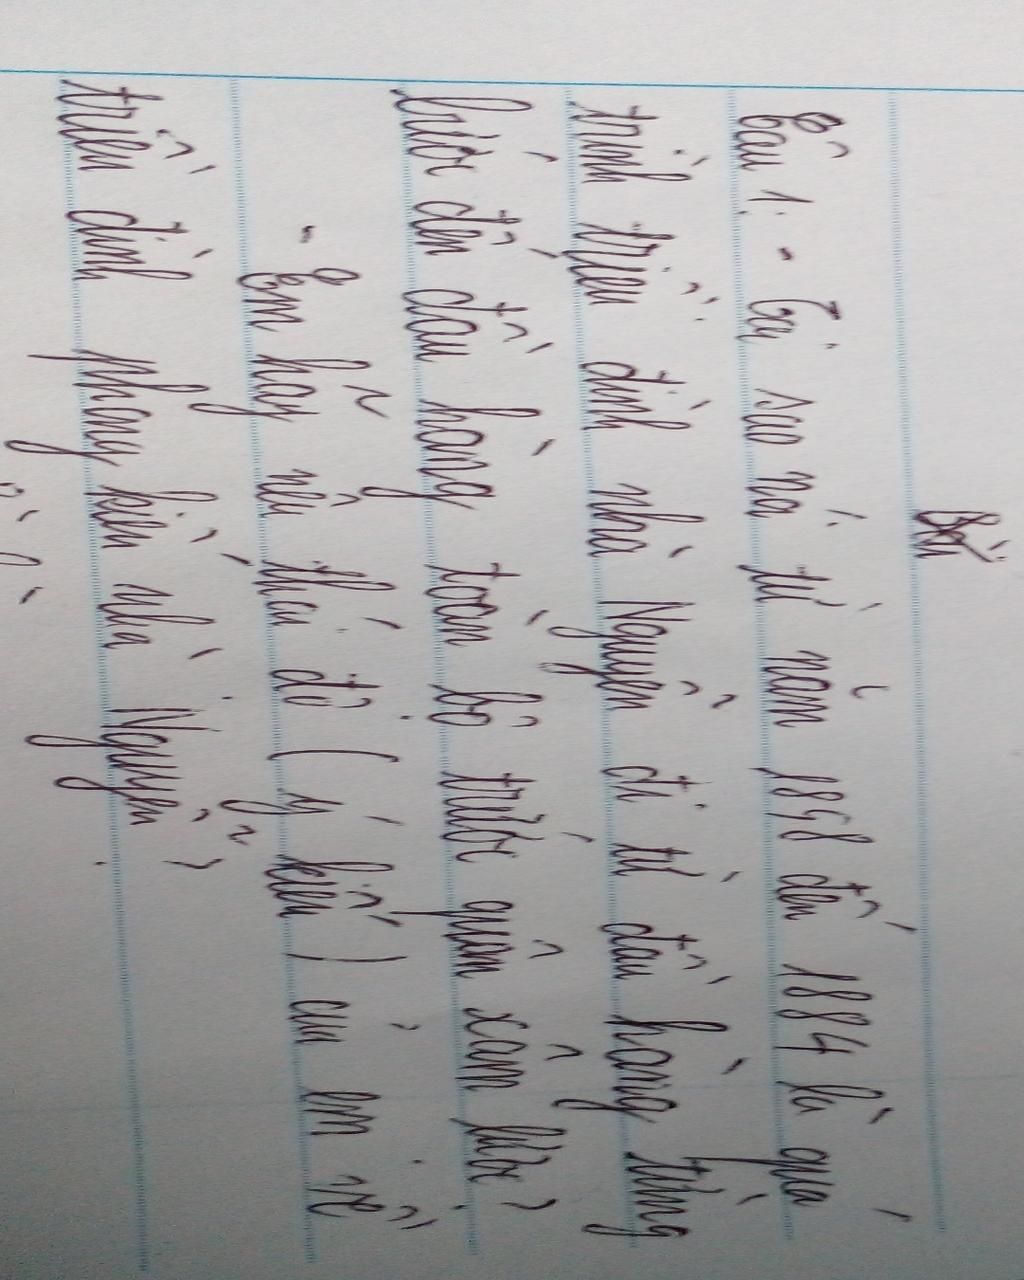 Câu 1. - Tại sao nói từ năm 1858 đến 1884 là quá
trình triều đình nhà Nguyễn đi từ đầu hàng từng
bước đến đầu hàng toàn bộ trước quân xâm lược?
- Em hãy nêu thái độ (ý kiến) của em về
triều đình phong kiến nhà Nguyễn?